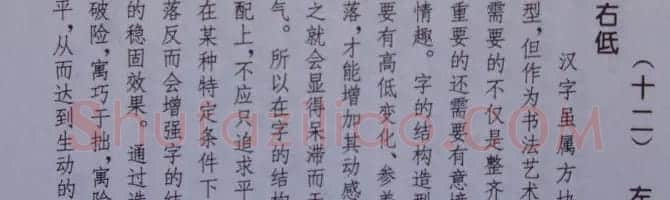 （十二） 左
右低
汉字虽属方块
型，但作为书法艺术
需要的不仅是整齐
重要的还需要有意境
情趣。字的结构造型
要有高低变化、参差
落，才能增加其动感
之就会显得呆滞而无
气。所以在字的结构
配上，不应只追求平
在某种特定条件下
落反而会增强字的结
的稳固效果。通过造
破险，寓巧于拙，寓险
平，从而达到生动的